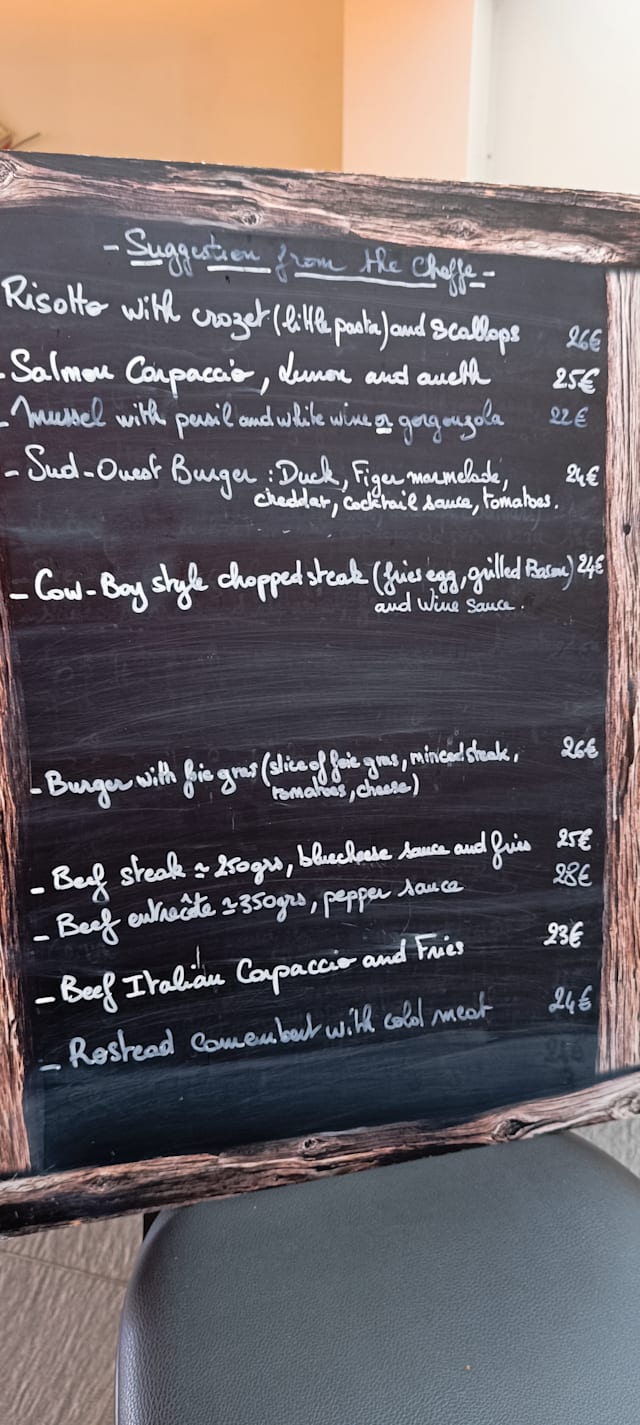 - Suggestion from the Cheffe -
Risotto with crozet (little pasta) and scallops 26€
- Salmon Carpaccio, Lemon and aneth 25€
- Mussel with persil and white wine or gorgonzola 22€
- Sud-Ouest Burger : Duck, Figer marmelade, 24€
cheddar, cocktail sauce, tomatoes.
- Cow-Boy style chopped steak (fries egg, grilled Bacon) 24€
and Wine Sauce.
- Burger with foie gras (slice of foie gras, minced steak, 26€
tomatoes, cheese)
- Beef steak ≃ 250grs, bluecheese sauce and fries 25€
- Beef entrecôte ≃ 350grs, pepper sauce 28€
- Beef Italian Carpaccio and Fries 23€
- Rostead Camembert with cold meat 24€